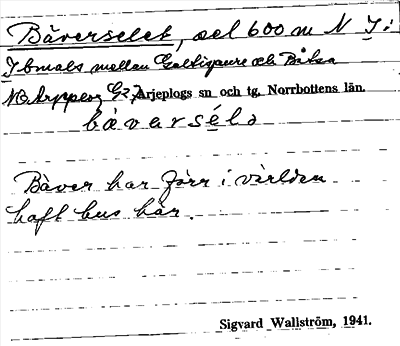 Bäverselet, sel 600 m N I:
Ibmals mellan Galtispure och Båtsa
Arjeplogs sn och tg. Norrbottens län.
bävarsélə
Bäver har förr i världen
haft bus här.
Sigvard Wallström, 1941.